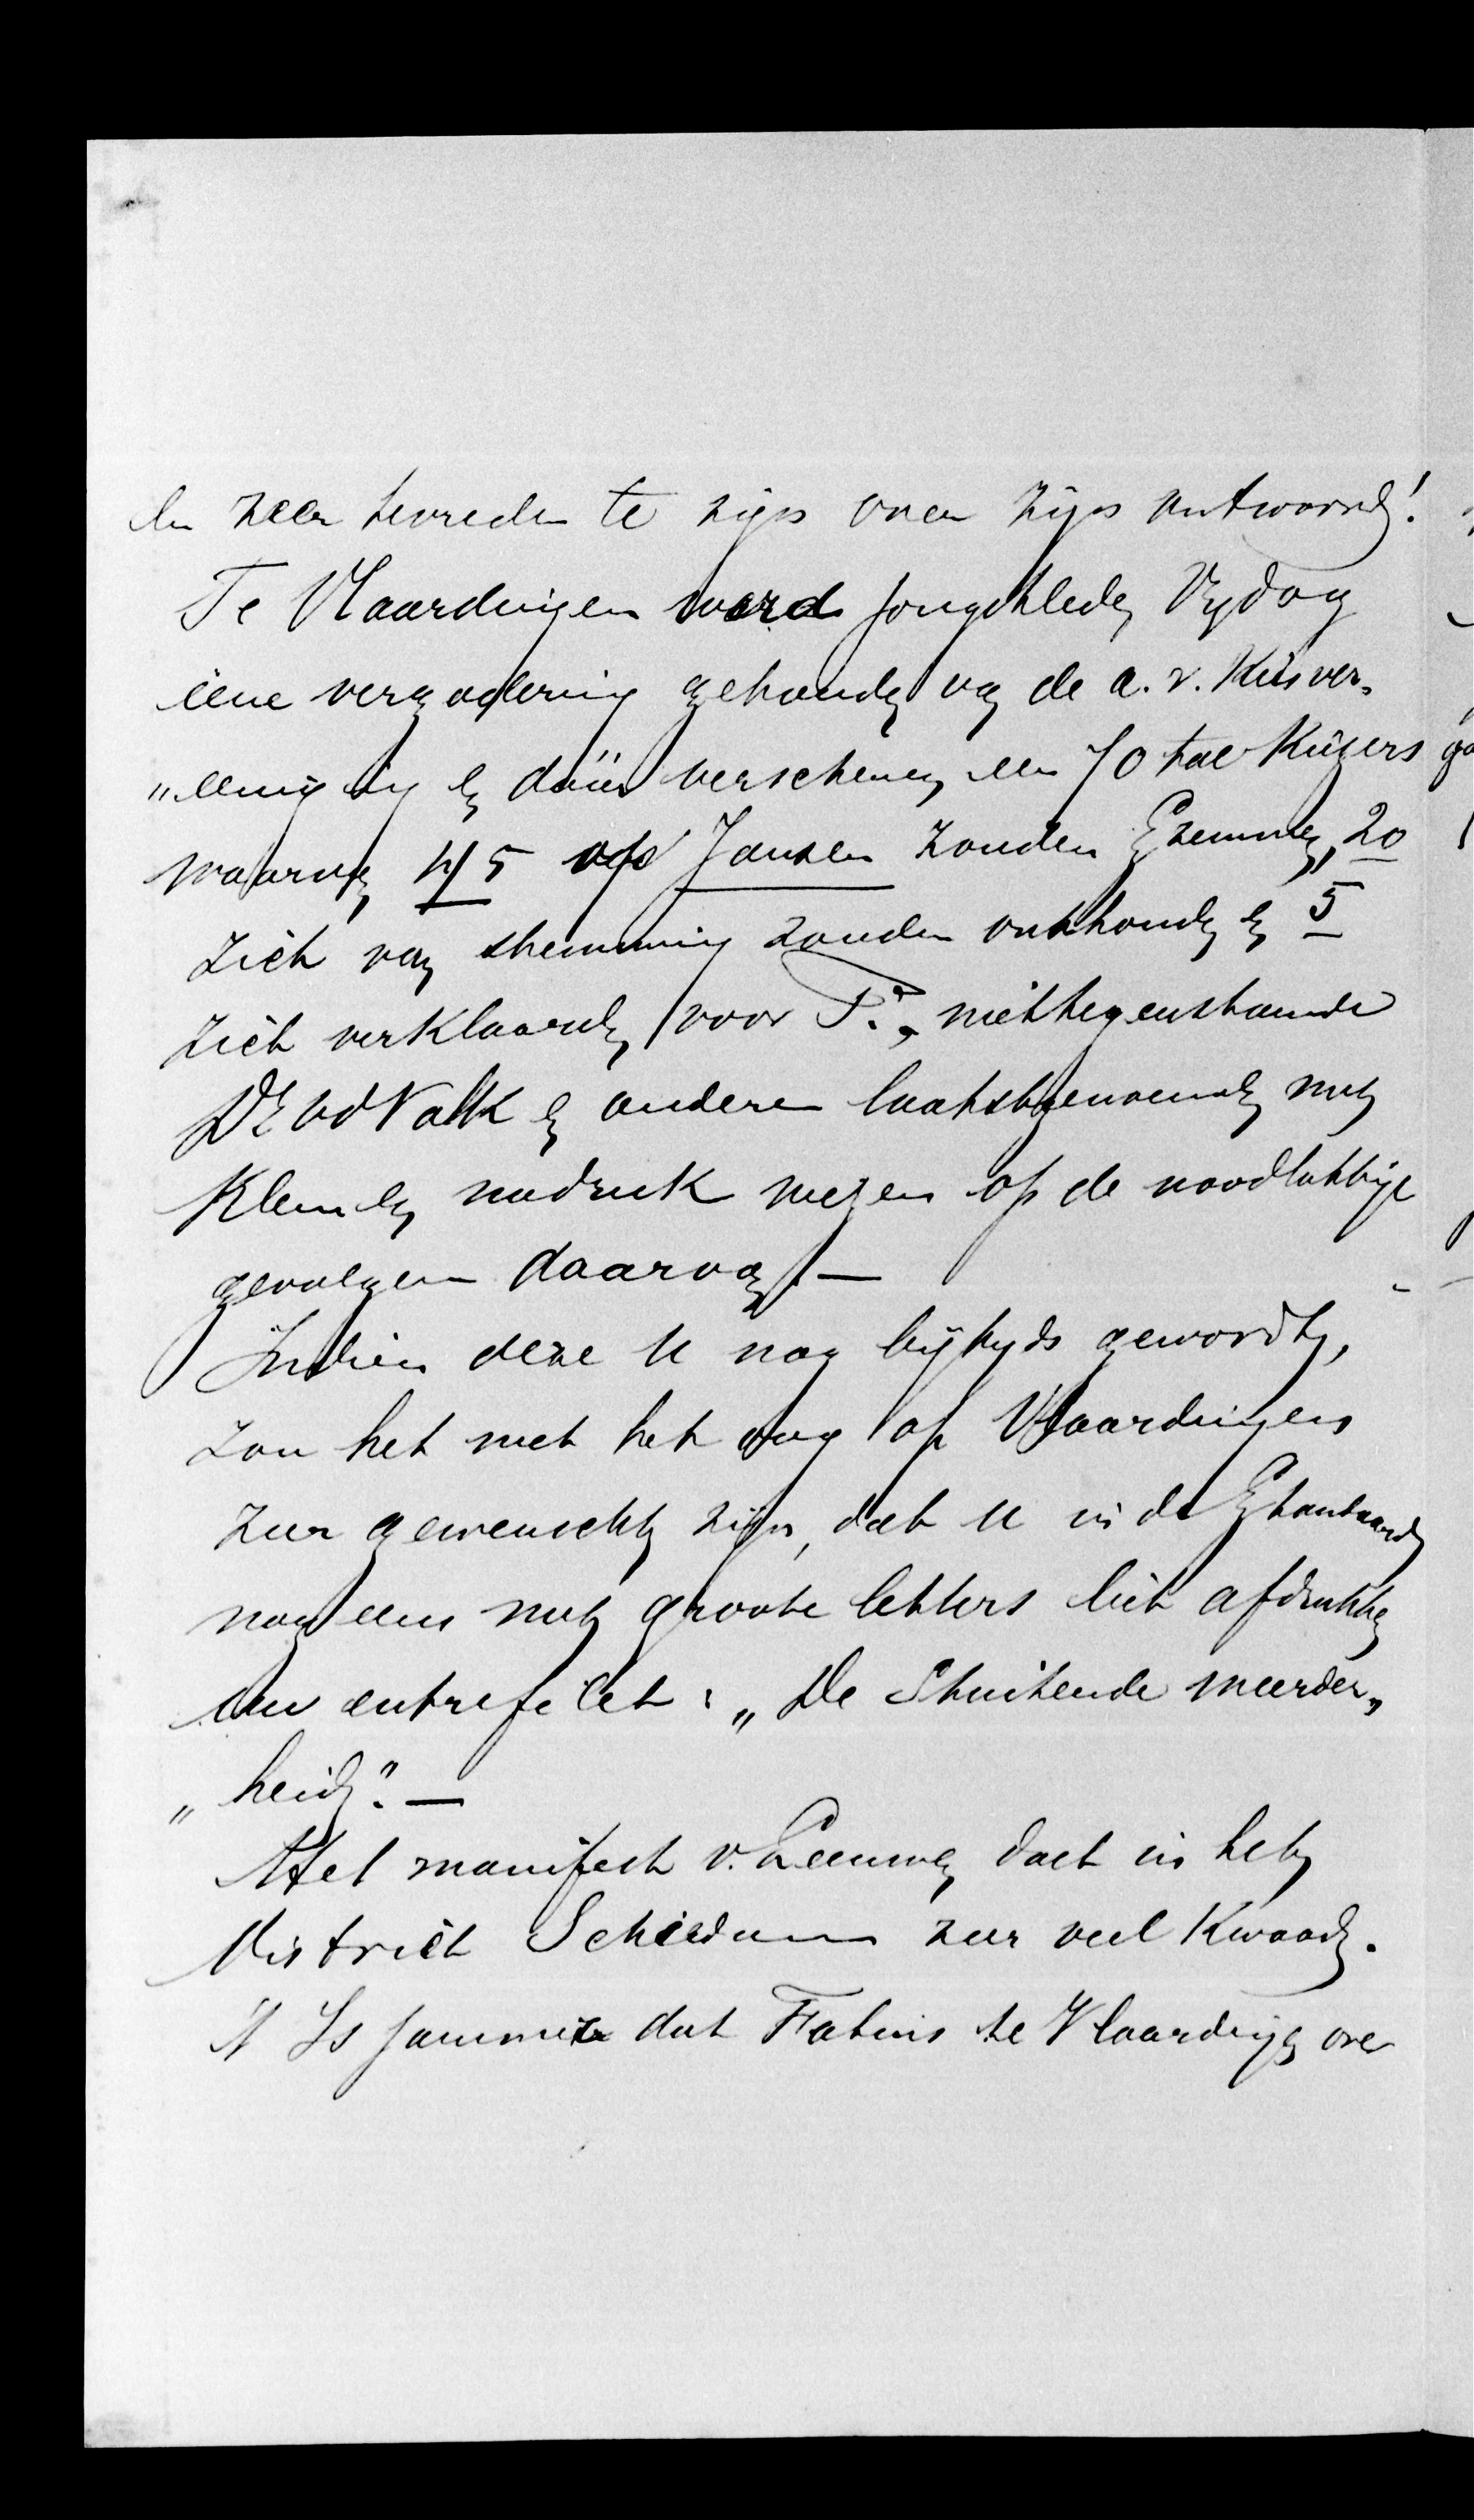 den zeer tevreden te zijn over zijn antwoord!
Te Vlaardingen werd jongstleden Vrydag
eene vergadering gehouden van de a. r. Kiesver„
„eeniging en daar verschenen een 70 tal Kiezers
waarvan 45 op Jansen zouden stemmen, 20
zich van stemming zouden onthouden en 5
zich verklaarden voor F., niettegenstaande
Ds vd Valk en anderen laatstgenoemden met
klem en nadruk wezen op de noodlottige
gevolgen daarvan! —
Indien deze U nog bijtyds gewordt,
zou het met het oog op Vlaardingen
zeer gewenscht zijn, dat U in de Standaard
nog eens met groote letters liet afdrukken
uw entrefilet: „De Stuitende meerder„
„heid". —
Het manifest v. Leeuwen doet in het
district Schiedam zeer veel Kwaad.
't Is jammer dat Fabius te Vlaardingen over